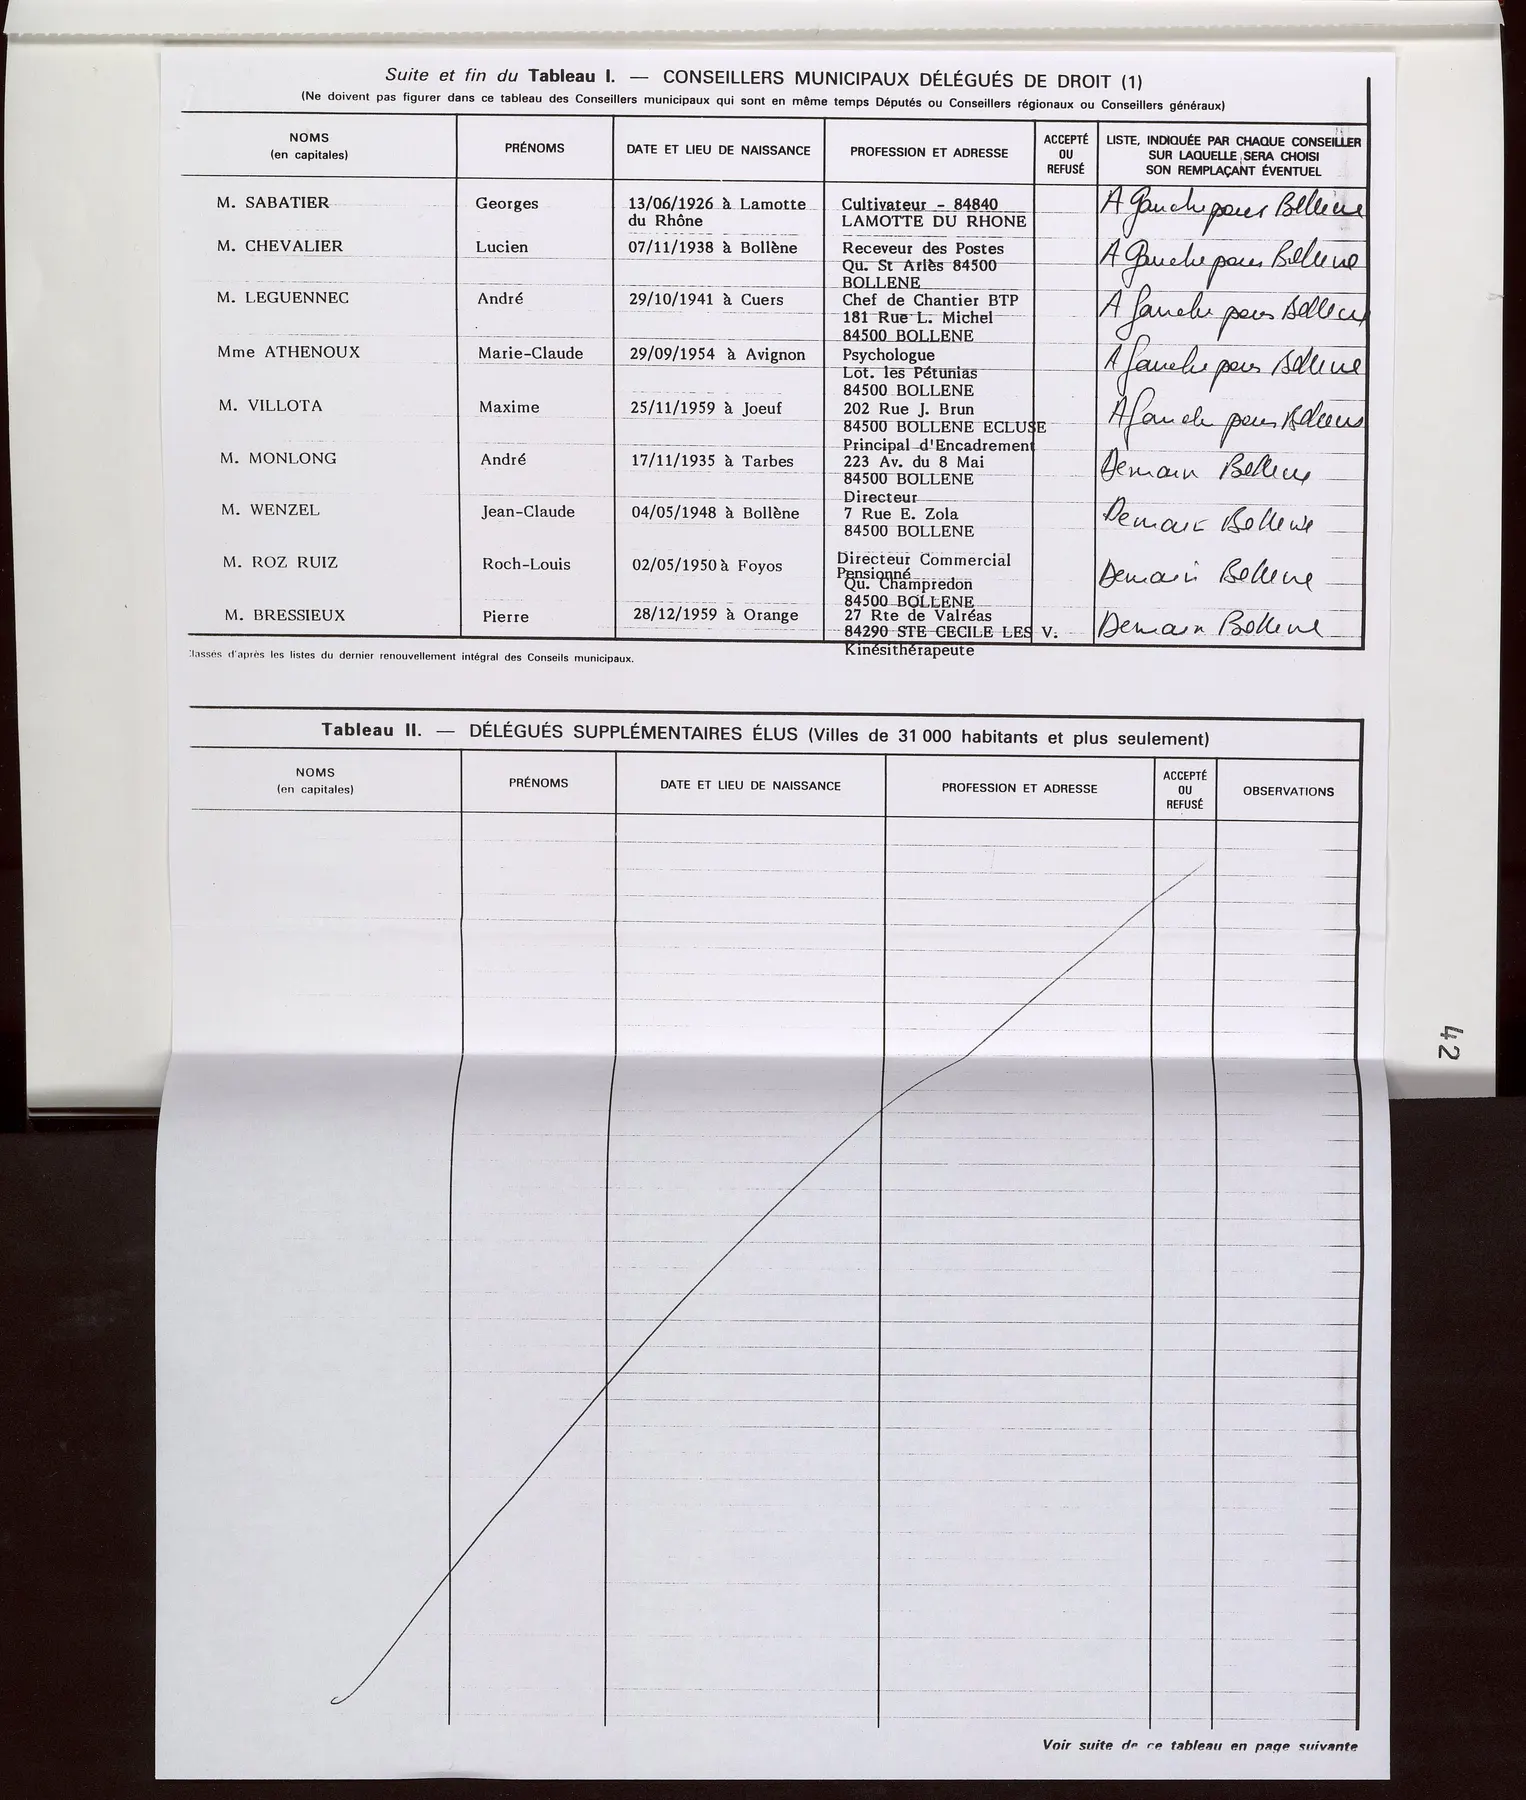 Suite et fin du Tableau I. — CONSEILLERS MUNICIPAUX DÉLÉGUÉS DE DROIT (1)
(Ne doivent pas figurer dans ce tableau des Conseillers municipaux qui sont en même temps Députés ou Conseillers régionaux ou Conseillers généraux)
NOMS
(en capitales)
PRÉNOMS
DATE ET LIEU DE NAISSANCE
PROFESSION ET ADRESSE
ACCEPTÉ
OU
REFUSÉ
LISTE, INDIQUÉE PAR CHAQUE CONSEILLER
SUR LAQUELLE SERA CHOISI
SON REMPLAÇANT ÉVENTUEL
M. SABATIER
Georges
13/06/1926 à Lamotte
du Rhône
Cultivateur - 84840
LAMOTTE DU RHONE
A Gauche pour Bollène
M. CHEVALIER
Lucien
07/11/1938 à Bollène
Receveur des Postes
Qu. St Ariès 84500
BOLLENE
A Gauche pour Bollène
M. LEGUENNEC
André
29/10/1941 à Cuers
Chef de Chantier BTP
181 Rue L. Michel
84500 BOLLENE
A Gauche pour Bollène
Mme ATHENOUX
Marie-Claude
29/09/1954 à Avignon
Psychologue
Lot. les Pétunias
84500 BOLLENE
A Gauche pour Bollène
M. VILLOTA
Maxime
25/11/1959 à Joeuf
202 Rue J. Brun
84500 BOLLENE ECLUSE
Principal d'Encadrement
A Gauche pour Bollène
M. MONLONG
André
17/11/1935 à Tarbes
223 Av. du 8 Mai
84500 BOLLENE
Directeur
Demain Bollène
M. WENZEL
Jean-Claude
04/05/1948 à Bollène
7 Rue E. Zola
84500 BOLLENE
Demain Bollène
M. ROZ RUIZ
Roch-Louis
02/05/1950 à Foyos
Directeur Commercial
Pensionné
Qu. Champredon
84500 BOLLENE
Demain Bollène
M. BRESSIEUX
Pierre
28/12/1959 à Orange
27 Rte de Valréas
84290 STE CECILE LES V.
Kinésithérapeute
Demain Bollène
Classés d'après les listes du dernier renouvellement intégral des Conseils municipaux.
Tableau II. — DÉLÉGUÉS SUPPLÉMENTAIRES ÉLUS (Villes de 31 000 habitants et plus seulement)
NOMS
(en capitales)
PRÉNOMS
DATE ET LIEU DE NAISSANCE
PROFESSION ET ADRESSE
ACCEPTÉ
OU
REFUSÉ
OBSERVATIONS
42
Voir suite de ce tableau en page suivante